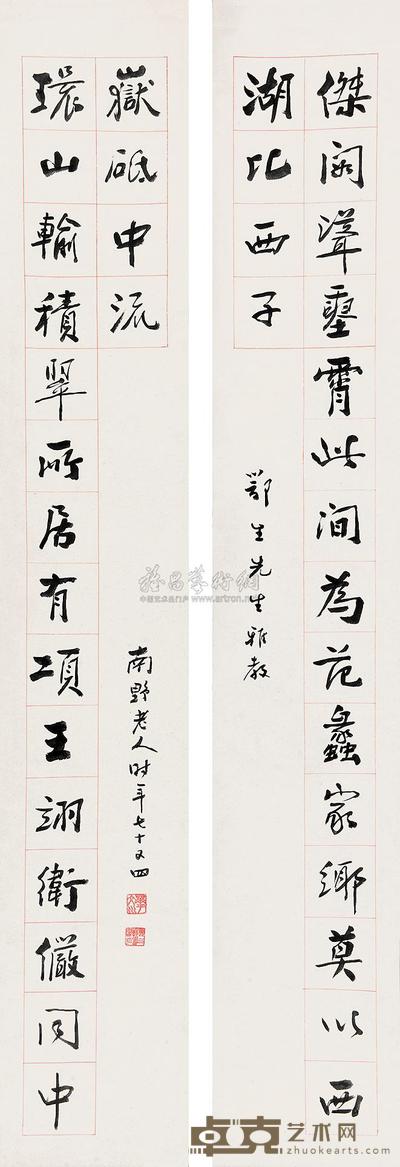 傑閣聳靈霄此間為范蠡家鄉莫以西
湖比西子
鄂生先生雅教
環山輸積翠所居有項王翊衛儼同中
嶽砥中流
南野老人时年七十又四
雅昌藝術網
www.artron.net
卓克艺术网
zhuokearts.com